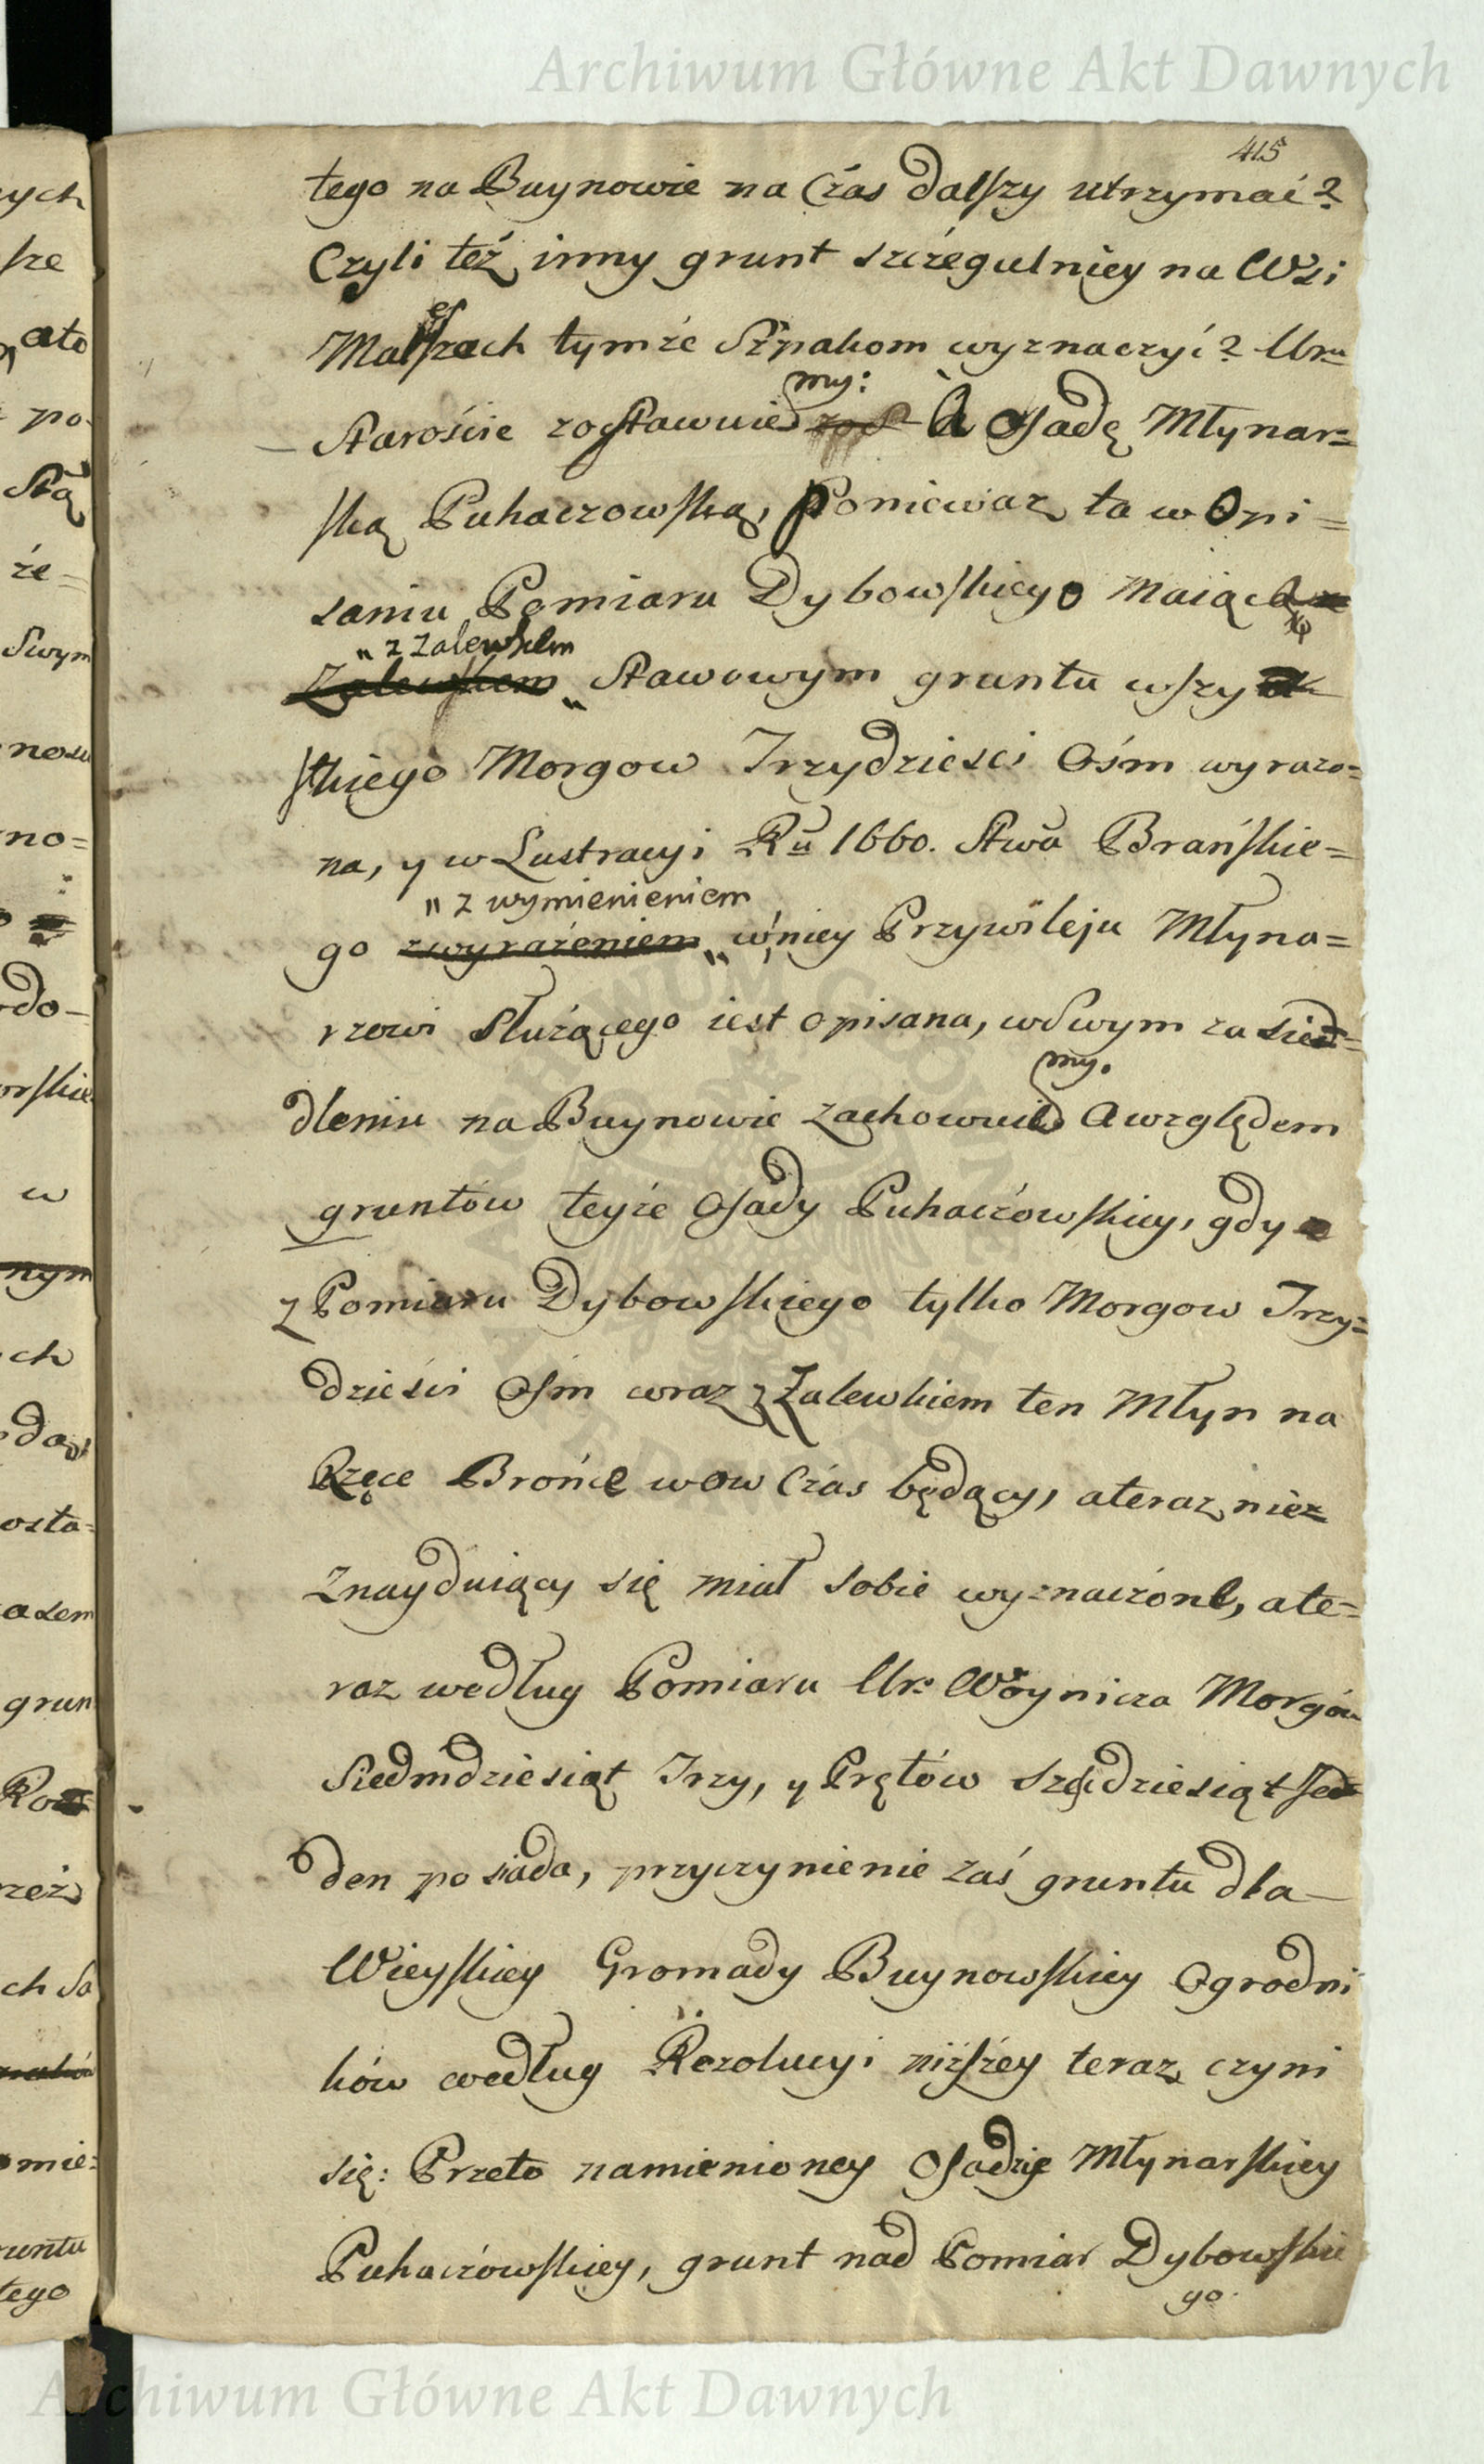 Archiwum Główne Akt Dawnych
415
tego na Buynowie na Czas dalszy utrzymać?
Czyli też inny grunt szczegulniey na Wsi
Maleszach tymże Szpakom wyznaczyć? Urm
Staroście zostawuiemy: A Osadę Młynar=
ską Puhaczowską, Ponieważ ta w Opi=
saniu Pomiaru Dybowskiego maiącą
„ z Zalewkem
Zalewkiem „ Stawowym gruntu wszy
stkiego Morgow Trzydziesci Ośm wyrażo=
na, y w Lustracyi Ru 1660. Stwa Brańskie=
„ z wymienieniem
go z wyrażeniem „ w niey Przywileju Młyna=
rzowi Służącego iest opisana, w Swym zasied=
dleniu na Buynowie zachowuiemy. A względem
gruntów teyże Osady Puhaczowskiey, gdy
z Pomiaru Dybowskiego tylko Morgow Trzy=
dzieści Ośm wraz z Zalewkiem ten Młyn na
Rzęce Brońce wow Czas będący, a teraz nie
Znayduiący się miał sobie wyznaczone, a te=
raz według Pomiaru Ur: Woynicza Morgów
Siedmdziesiąt Trzy, y Prętów Sześdziesiąt Jed
den posiada, przyczynienie zaś gruntu dla
Wieyskiey Gromady Buynowskiey Ogrodni
ków według Rezolucyi niższey teraz czyni
się: Przeto namienioney Osadzie Młynarskiey
Puhaczowskiey, grunt nad Pomiar Dybowskie
go
Archiwum Główne Akt Dawnych